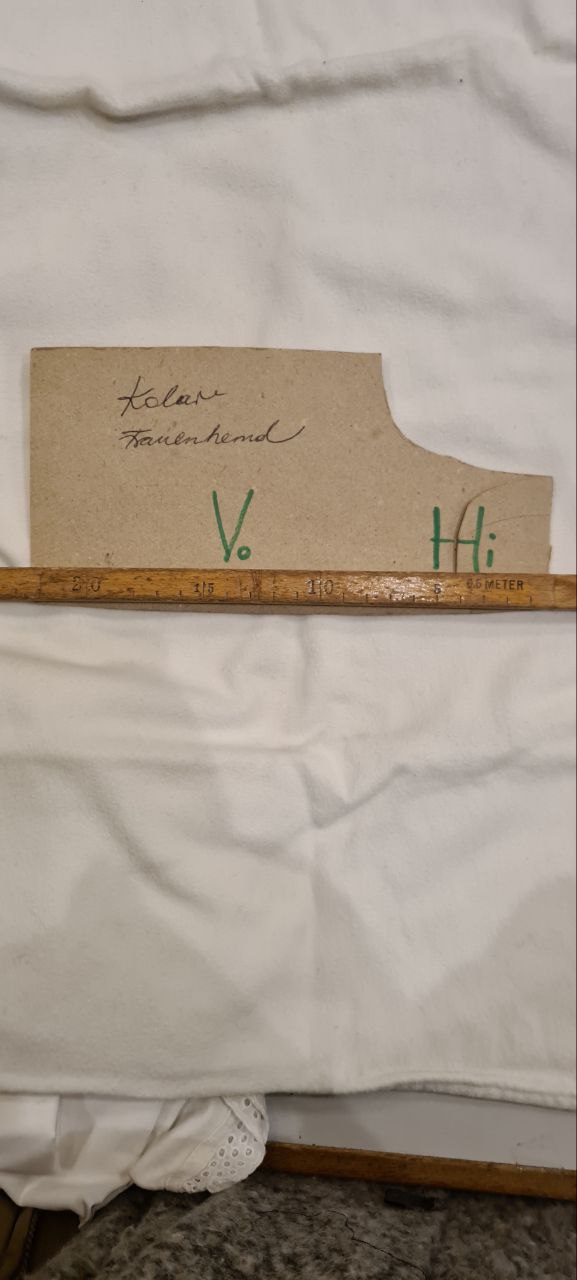 Kolar
Frauenhemd
Vo Hi
20 15 10 5 0.5 METER